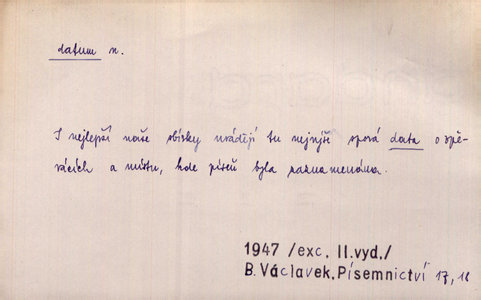 datum n.
I nejlepší naše sbírky uvádějí tu nejvýš sporá data o zpě-
vácích a místu, kde píseň byla zaznamenána.
1947 /exc. II.vyd./
B. Václavek, Písemnictví 17, 18